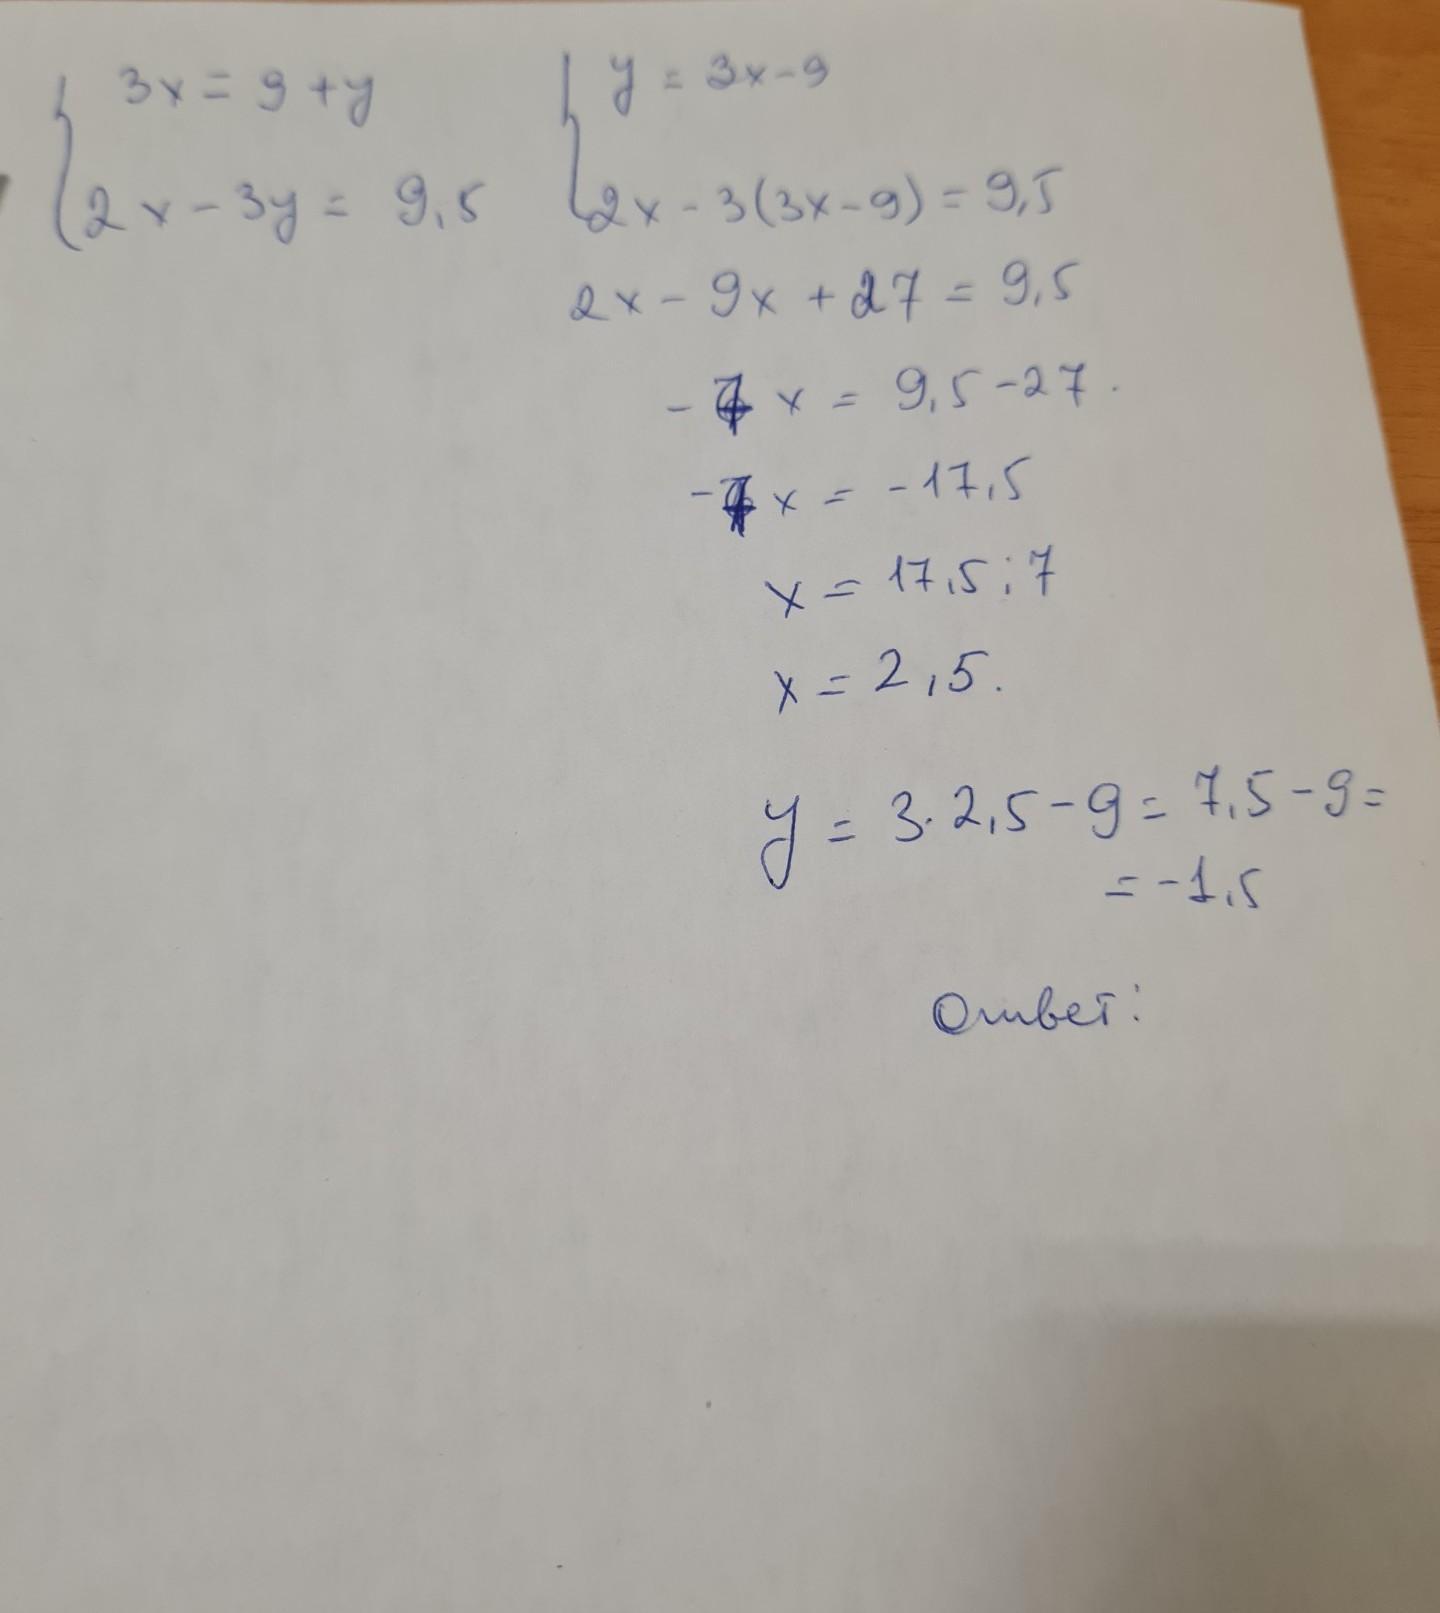 3x = 9 + y
2x - 3y = 9,5
y = 3x - 9
2x - 3(3x - 9) = 9,5
2x - 9x + 27 = 9,5
-7x = 9,5 - 27.
-7x = -17,5
x = 17,5 : 7
x = 2,5.
y = 3·2,5 - 9 = 7,5 - 9 =
= -1,5
Ответ: